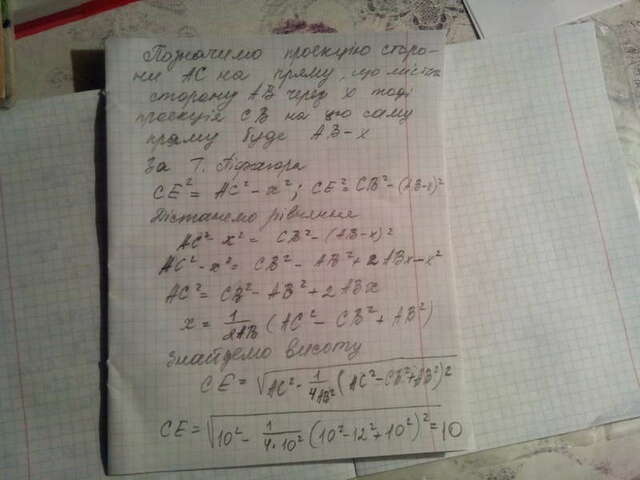 Позначимо проекцію сторо-
ни AC на пряму, що містить
сторону AB через x тоді
проекція CB на цю саму
пряму буде AB-x
За Т. Піфагора
CE² = AC² - x²; CE² = CB² - (AB-x)²
Дістанемо рівняння
AC² - x² = CB² - (AB-x)²
AC² - x² = CB² - AB² + 2ABx - x²
AC² = CB² - AB² + 2ABx
x = 1/2AB (AC² - CB² + AB²)
Знайдемо висоту
CE = √AC² - 1/4AB² (AC² - CB² + AB²)²
CE = √10² - 1/4·10² (10² - 12² + 10²)² = 10